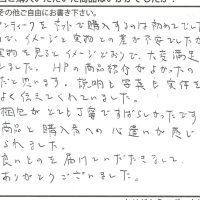 その他ご自由にお書き下さい。
アンティークをネットで購入するのは初めてでした
ので、イメージと実物との差が不安でしたが
実物を見るとイメージどおりで、大変満足
しました。HPの商品紹介がよかったの
だと思います。説明も写真も実体を
よく伝えてくれていました。
梱包がとても丁寧ですばらしかったです
商品と購入者への心遣いが感じ
られました。
良いものを届けていただきまして、
ありがとうございました。